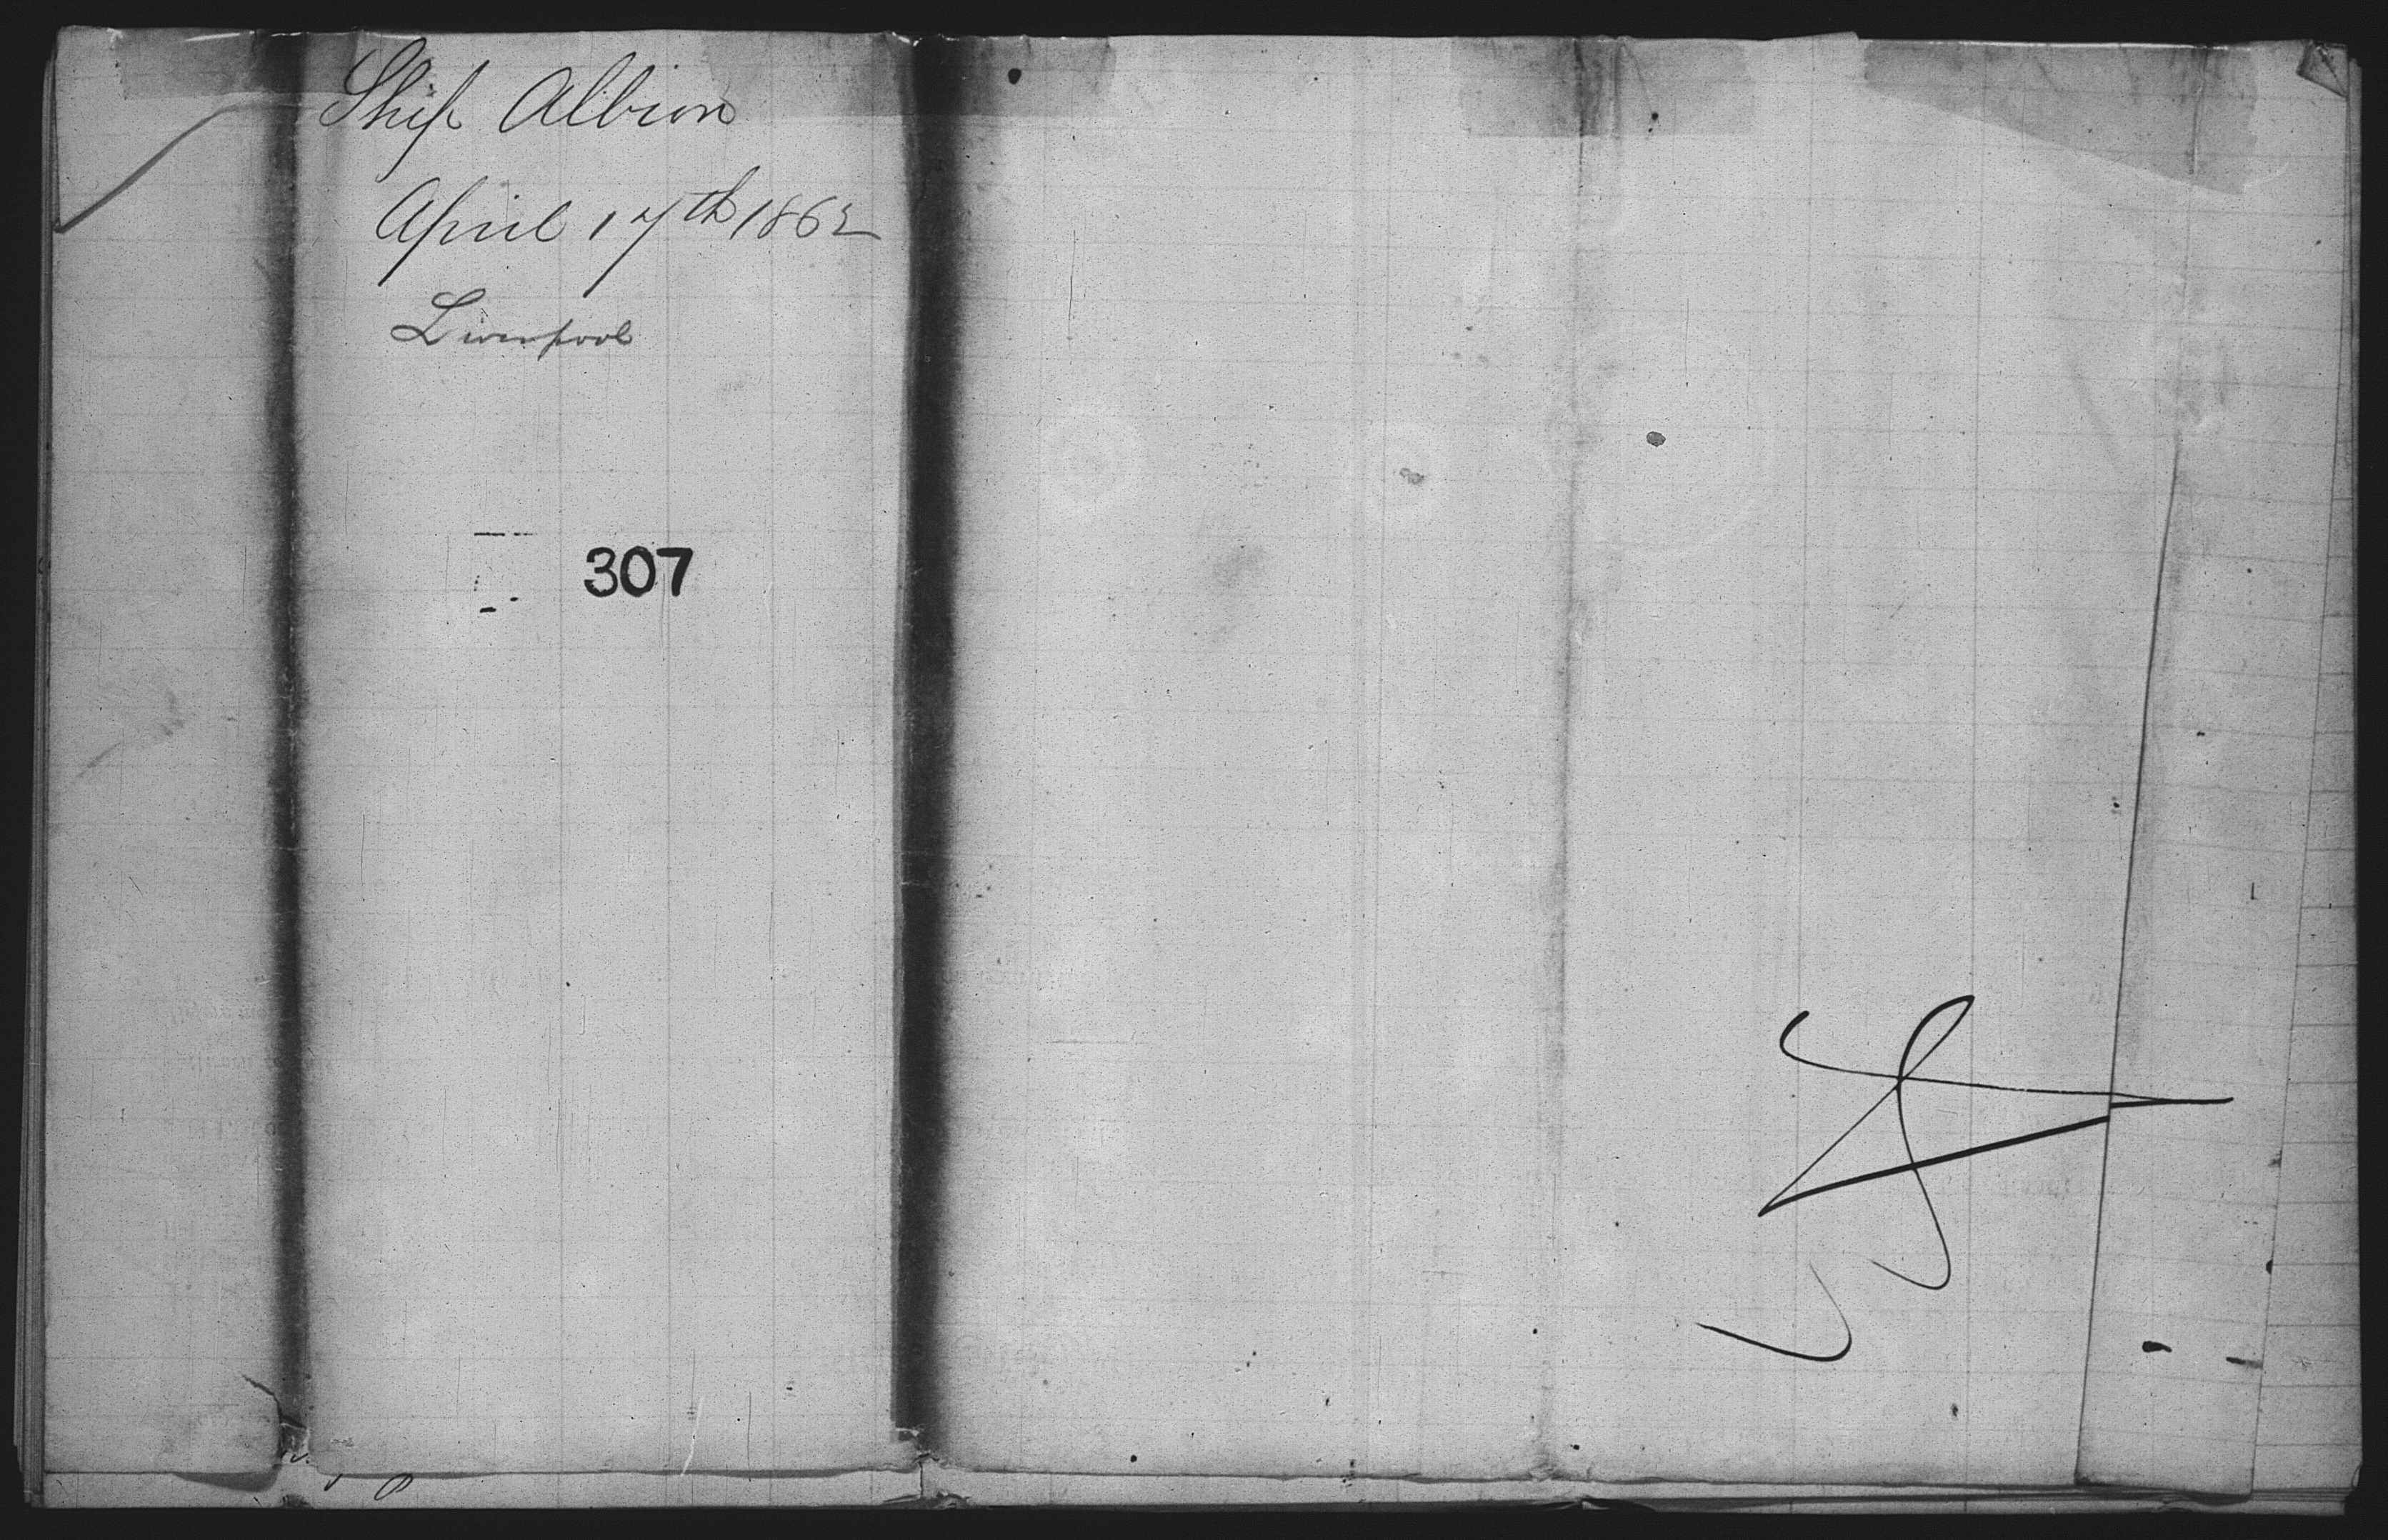 Ship Albion
April 17th 1862
Liverpool
307